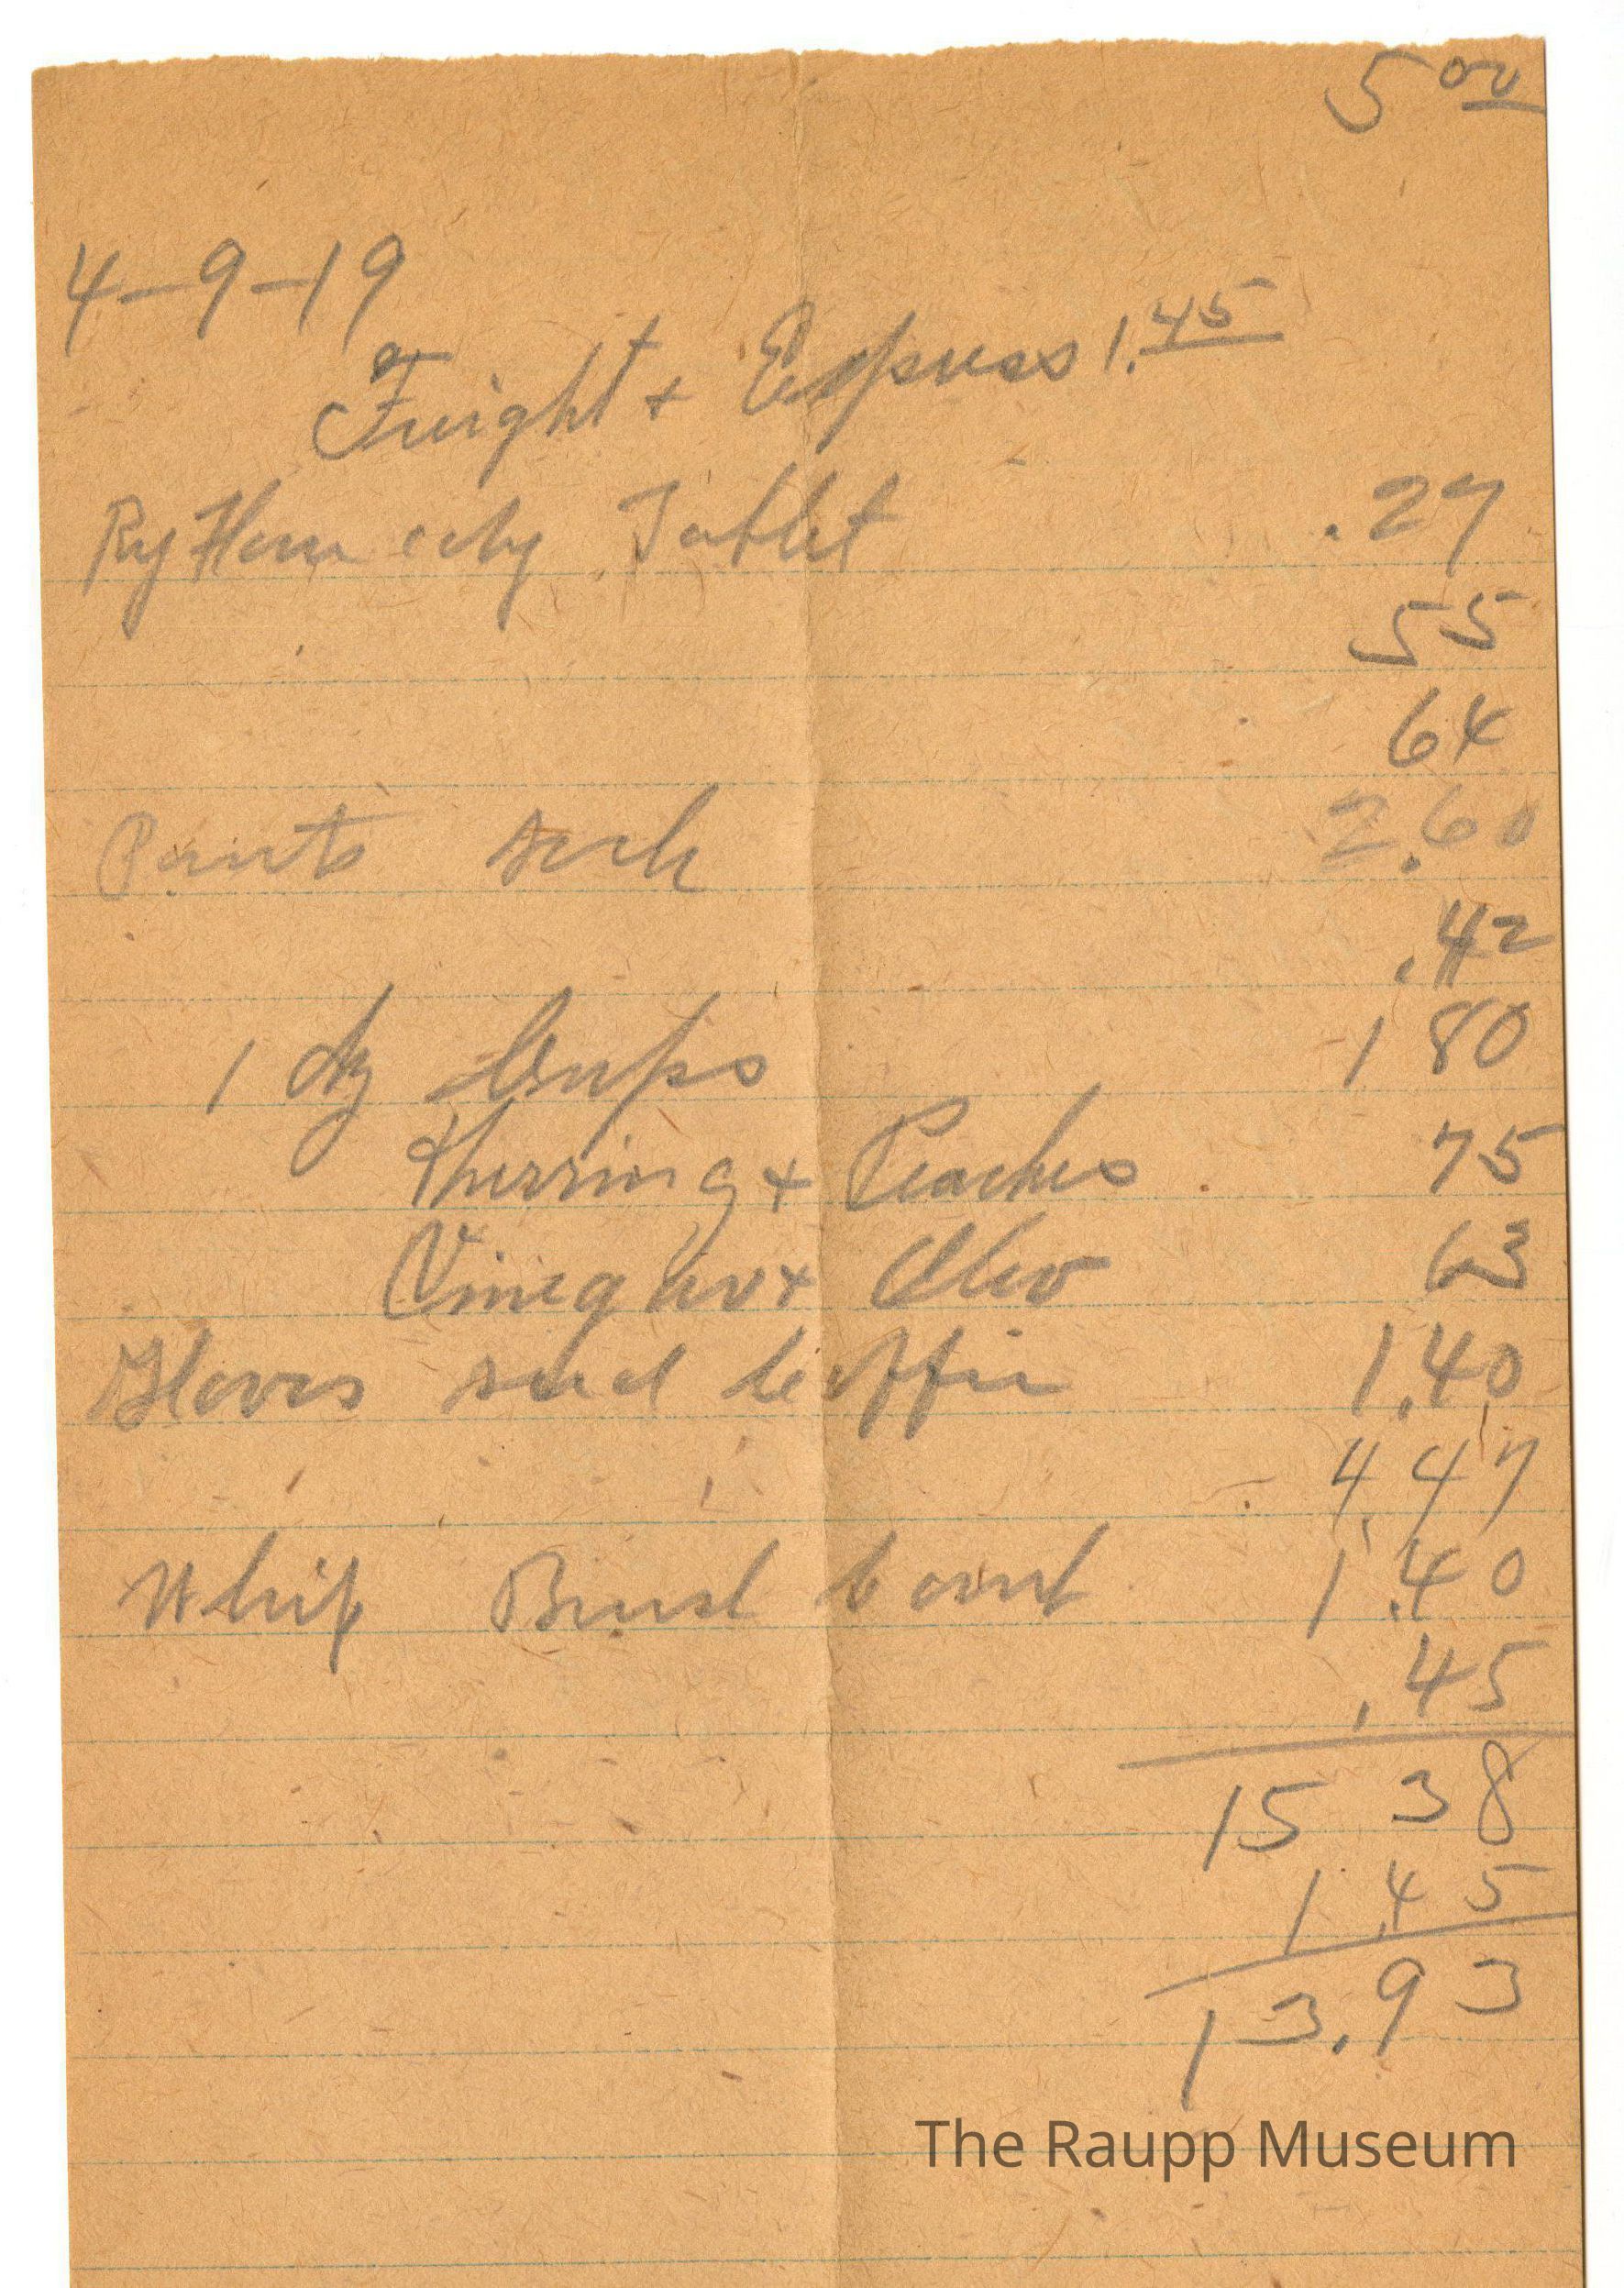 5 00
4-9-19
Freight + Express 1.45
Ry Flour Tablet .27
55
64
Pants 2.60
.42
1 dz Cups 1 80
Herring + Peaches 75
Vinegar + Oleo 63
Gloves seed Coffie 1.40
4.47
Whip Brush 1.40
.45
15 38
1.45
13.93
The Raupp Museum